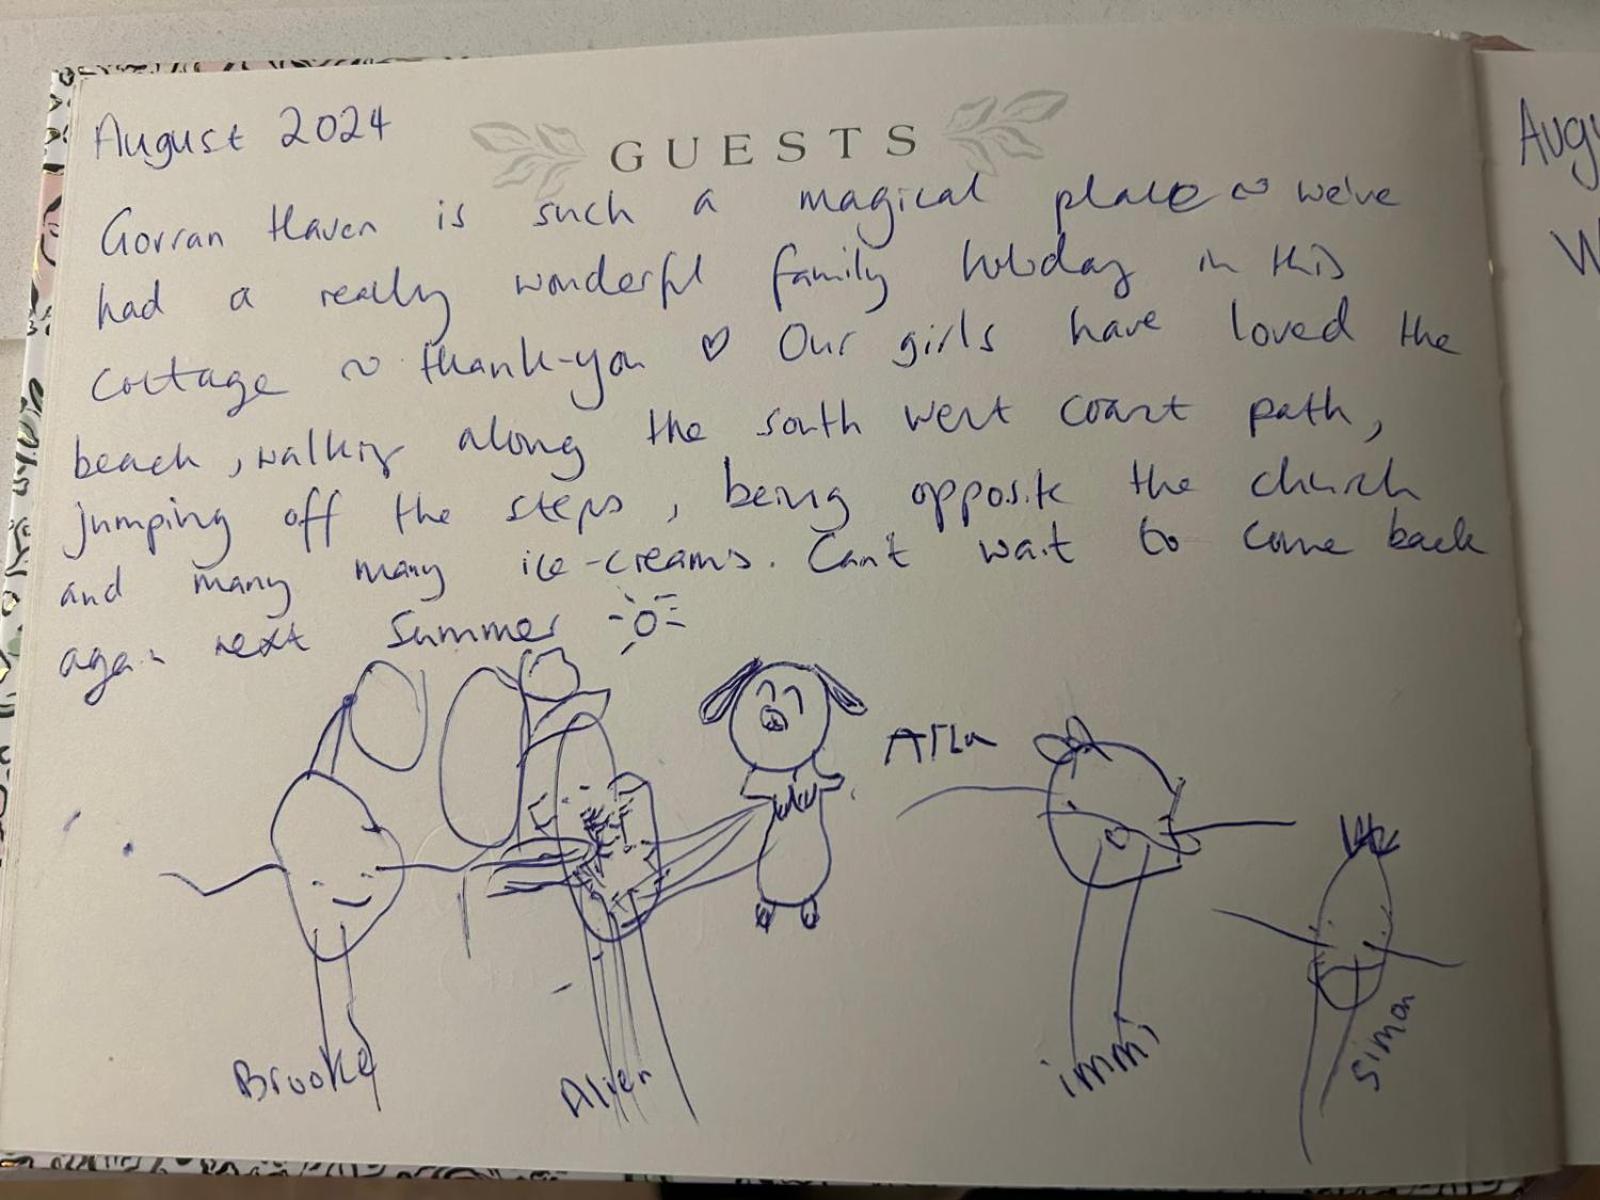 August 2024
GUESTS
Gorran Haven is such a magical place ~ we've
had a really wonderful family holiday in this
cottage ~ thank-you ♡ Our girls have loved the
beach, walking along the south west coast path,
jumping off the steps, being opposite the church
and many many ice-creams. Can't wait to come back
again next Summer
Brooke
immi
Simon
Aug
W